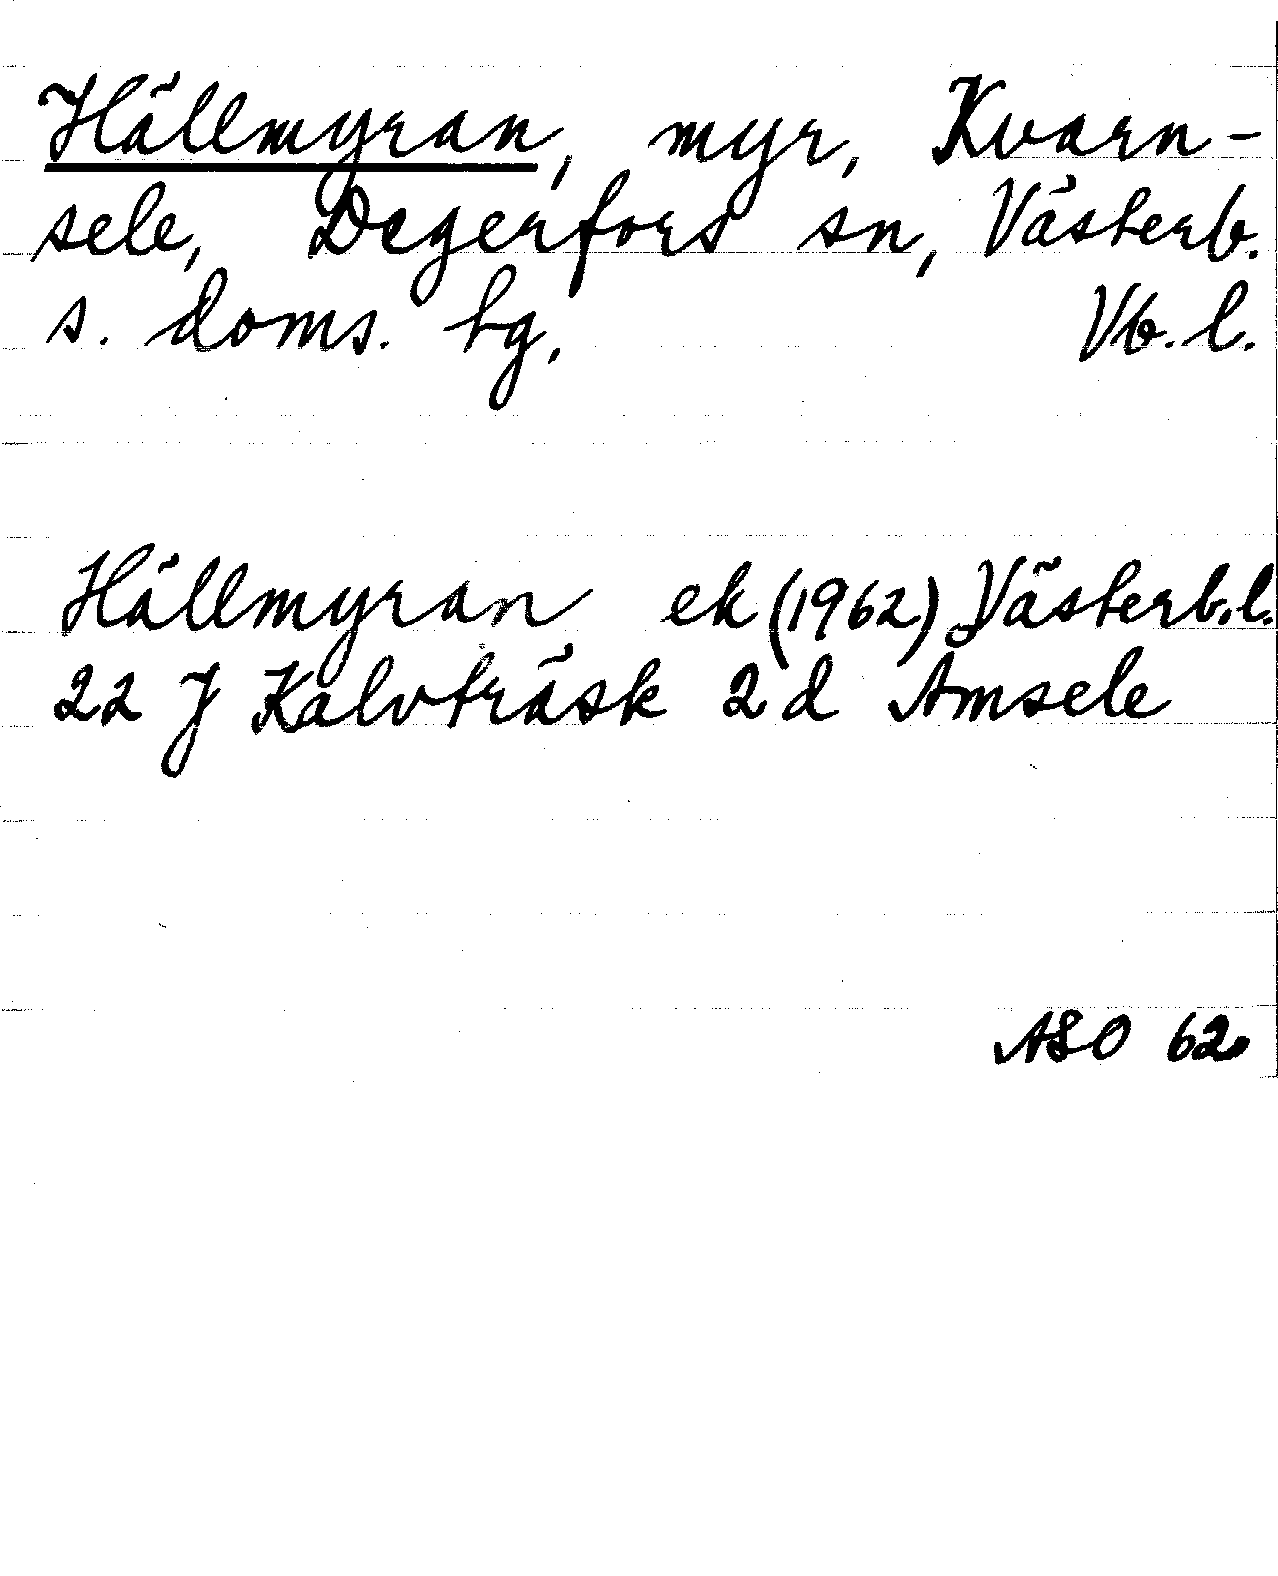 Hällmyran, myr, Kvarn-
sele, Degerfors sn, Västerb.
s. doms. tg, Vb. l.
Hällmyran ek (1962) Västerb.l.
22 J Kalvträsk 2 d Åmsele
ASO 62